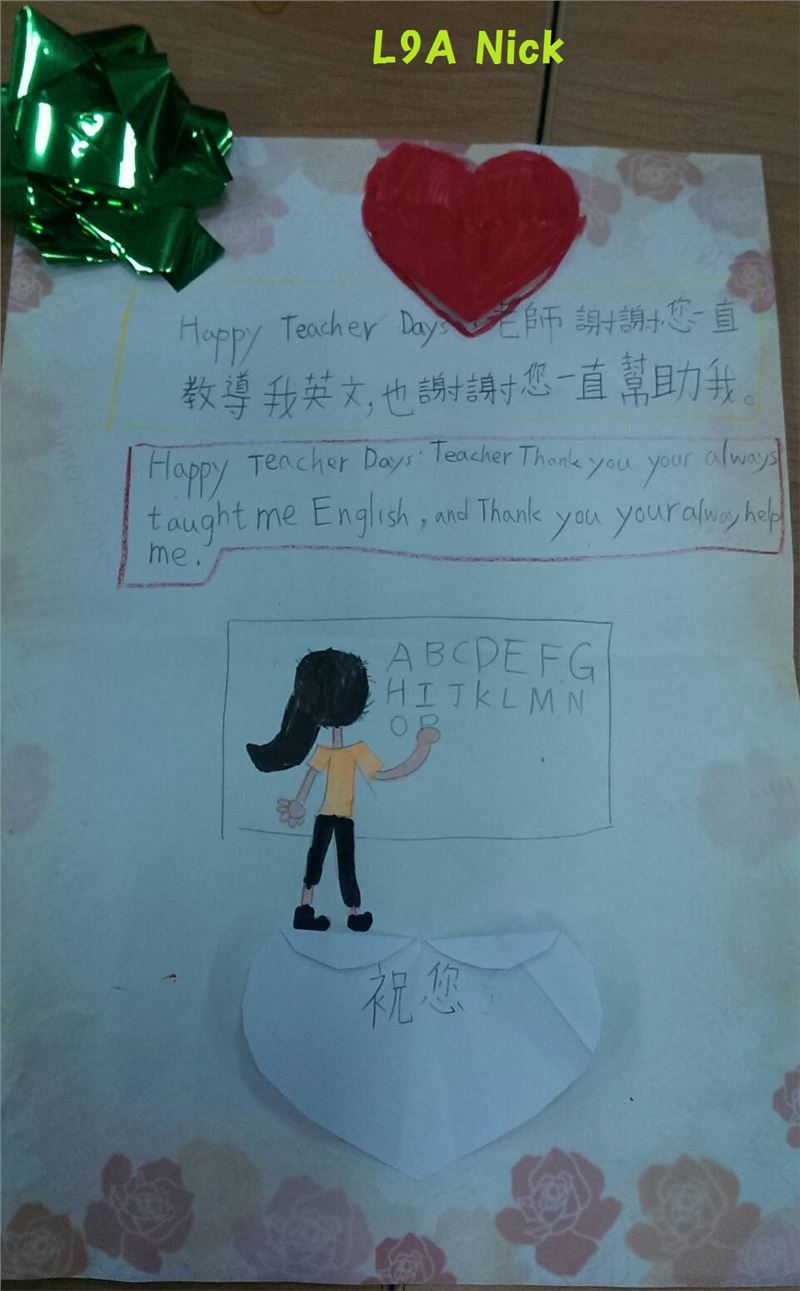 L9A Nick
Happy Teacher Days 老師 謝謝您一直
教導我英文,也謝謝您一直幫助我。
Happy Teacher Days: Teacher Thank you your always
taught me English, and Thank you your alway help
me.
A B C D E F G
H I J K L M N
O P
祝您